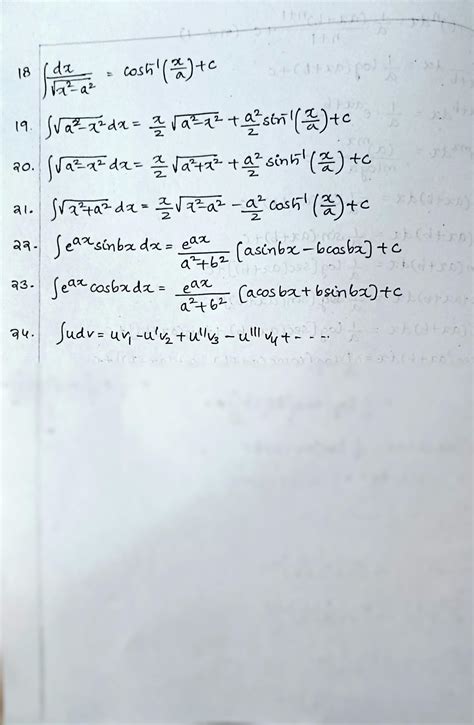 18 ∫ dx/√(x²-a²) = cosh⁻¹(x/a)+c
19. ∫√(a²-x²) dx = x/2 √(a²-x²) + a²/2 sin⁻¹(x/a)+c
20. ∫√(a²-x²) dx = x/2 √(a²+x²) + a²/2 sinh⁻¹(x/a)+c
21. ∫√(x²+a²) dx = x/2 √(x²-a²) - a²/2 cosh⁻¹(x/a)+c
22. ∫e^(ax) sinbx dx = e^(ax)/(a²+b²) [asinbx - bcosbx]+c
23. ∫e^(ax) cosbx dx = e^(ax)/(a²+b²) (acosbx + bsinbx)+c
24. ∫udv = uv₁ - u'v₂ + u''v₃ - u'''v₄ + ----